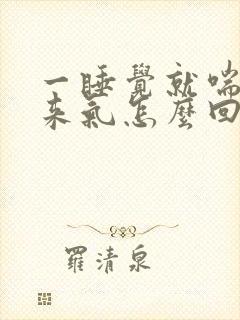 一睡覺就喘
来氣怎麼回
羅清泉